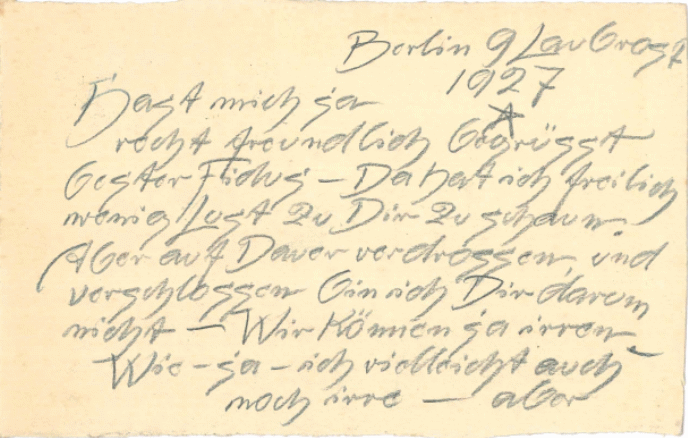 Berlin 9
1927
Hast mich ja
recht freundlich begrüsst
bester Fidus – Da hat ich freilich
wenig Lust zu Dir zu schaun.
Aber auf Dauer verdrossen und
verschlossen bin ich Dir darum
nicht – Wir können ja irren
Wie – ja – ich vielleicht auch
noch irre – aber